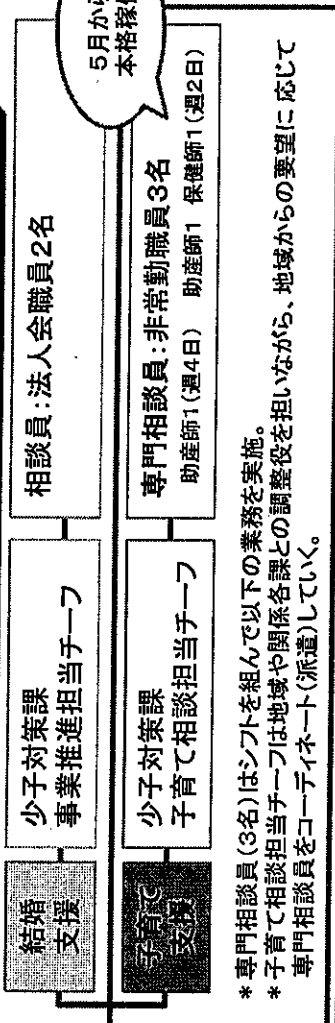 結婚
支援
少子対策課
事業推進担当チーフ
相談員:法人会職員2名
5月から
本格稼働
子育て
支援
少子対策課
子育て相談担当チーフ
専門相談員:非常勤職員3名
助産師1(週4日) 助産師1 保健師1(週2日)
*専門相談員(3名)はシフトを組んで以下の業務を実施。
*子育て相談担当チーフは地域や関係各課との調整役を担いながら、地域からの要望に応じて
専門相談員をコーディネート(派遣)していく。